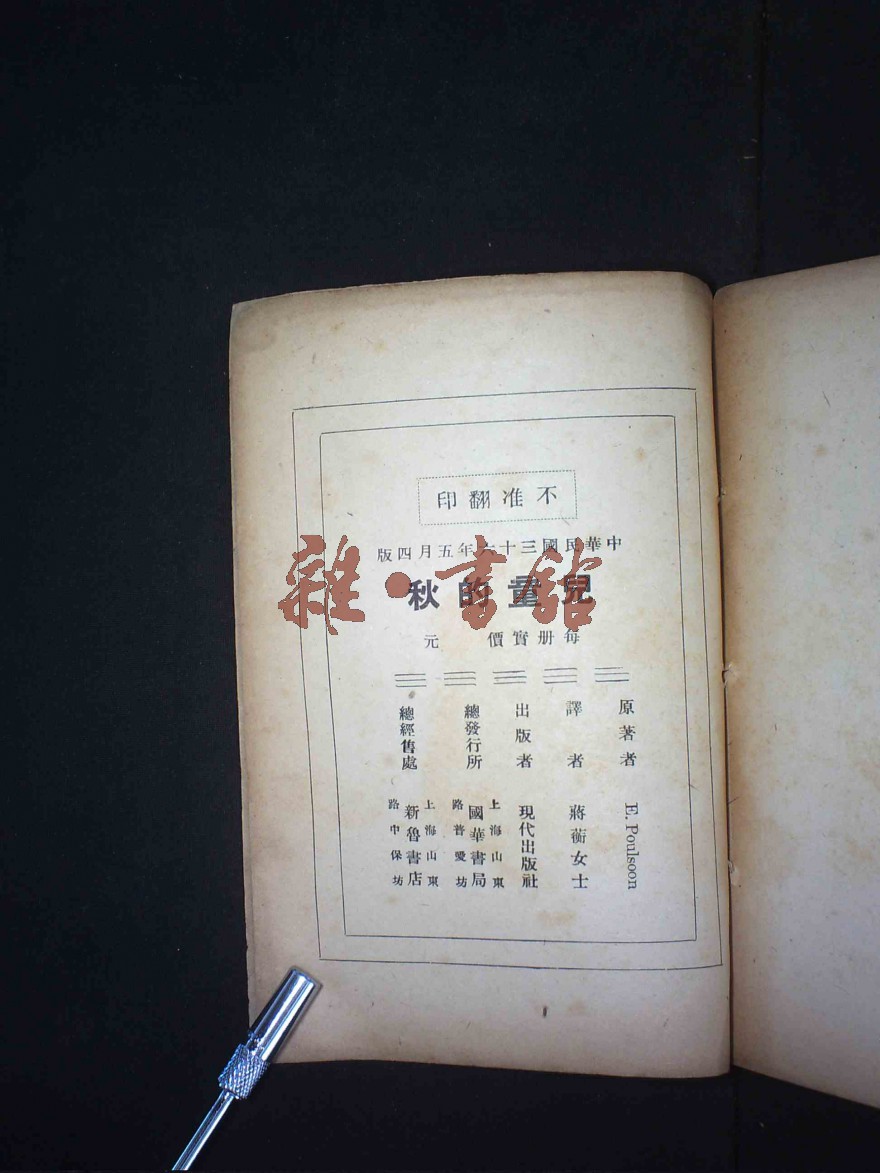 不准翻印
中華民國三十六年五月四版
兒童的秋
每册實價 元
原著者 E. Poulsoon
譯者 蔣衡女士
出版者 現代出版社
總發行所 上海山東路普愛坊 國華書局
總經售處 上海山東路中保坊 新魯書店
雜·書館